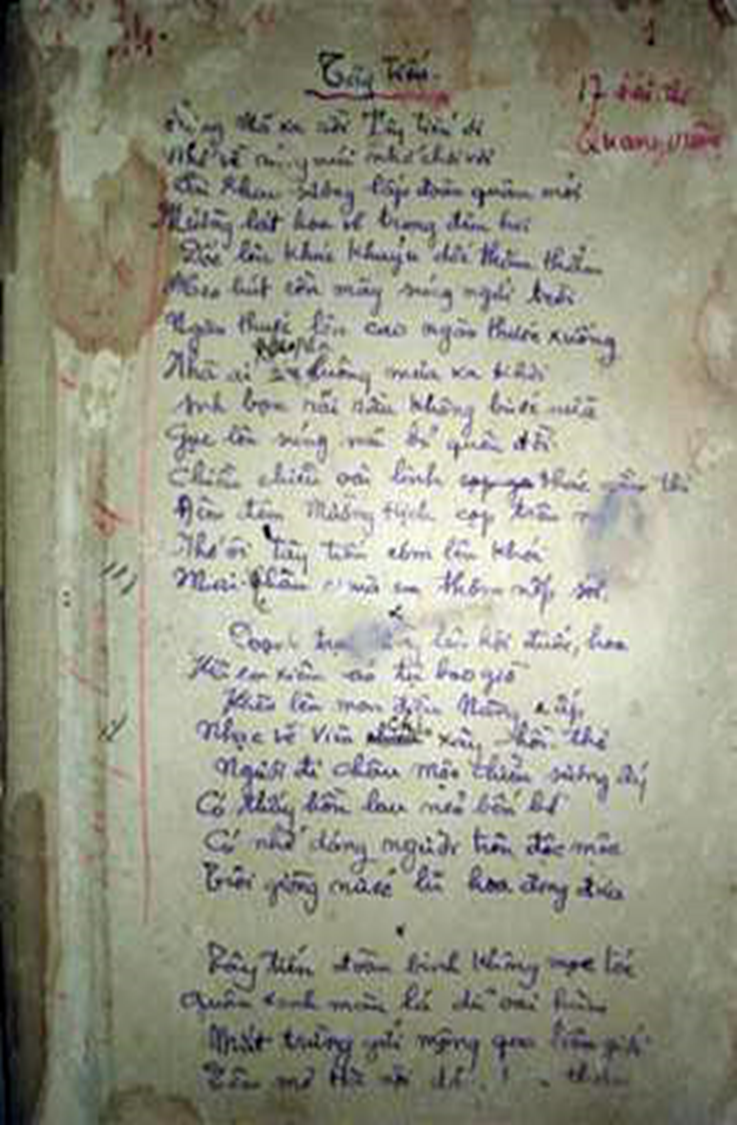 Tây tiến
17 bài thơ
Quang Dũng
Sông Mã xa rồi Tây tiến ơi
Nhớ về rừng núi nhớ chơi vơi
khao sương lấp đoàn quân mỏi
Mường lát hoa về trong đêm hơi
Dốc lên khúc khuỷu dốc thăm thẳm
Heo hút cồn mây súng ngửi trời
Ngàn thước lên cao ngàn thước xuống
Nhà ai luông mưa xa khơi
Anh bạn rãi dầu không bước nữa
Gục lên súng mũ bỏ quên đời
Chiều chiều oai linh thác gầm thét
Đêm đêm Mường Hịch cọp trêu
Nhớ ôi tây tiến cơm lên khói
Mai Châu mùa em thơm nếp xôi.
Doanh trại lên hội đuốc hoa
Kìa em xiêm áo tự bao giờ
Khèn lên man điệu Nàng e ấp
Nhạc về Viên xây hồn thơ
Người đi châu Mộc chiều sương ấy
Có thấy hồn lau nẻo bến bờ
Có nhớ dáng người trên độc mộc
Trôi giòng nước lũ hoa đong đưa
Tây tiến đoàn binh không mọc tóc
Quân xanh màu lá dữ oai hùm
Mắt trừng gửi mộng qua biên giới